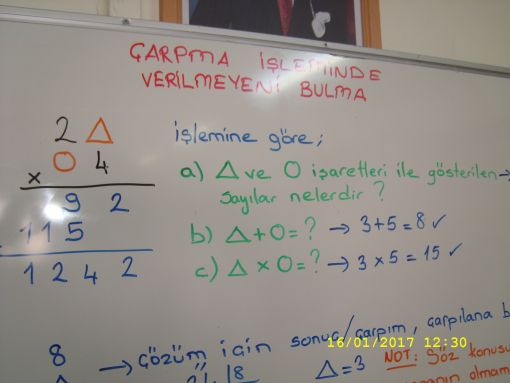 ÇARPMA İŞLEMİNDE
VERİLMEYENİ BULMA
2 △
○ 4
×
92
115
1242
işlemine göre;
a) △ ve ○ işaretleri ile gösterilen →
sayılar nelerdir ?
b) △ + ○ = ? → 3 + 5 = 8 ✓
c) △ × ○ = ? → 3 × 5 = 15 ✓
8
→ çözüm için sonuç/çarpım, çarpılana b
△ = 3
NOT: Söz konusu
olmam
16/01/2017 12:30